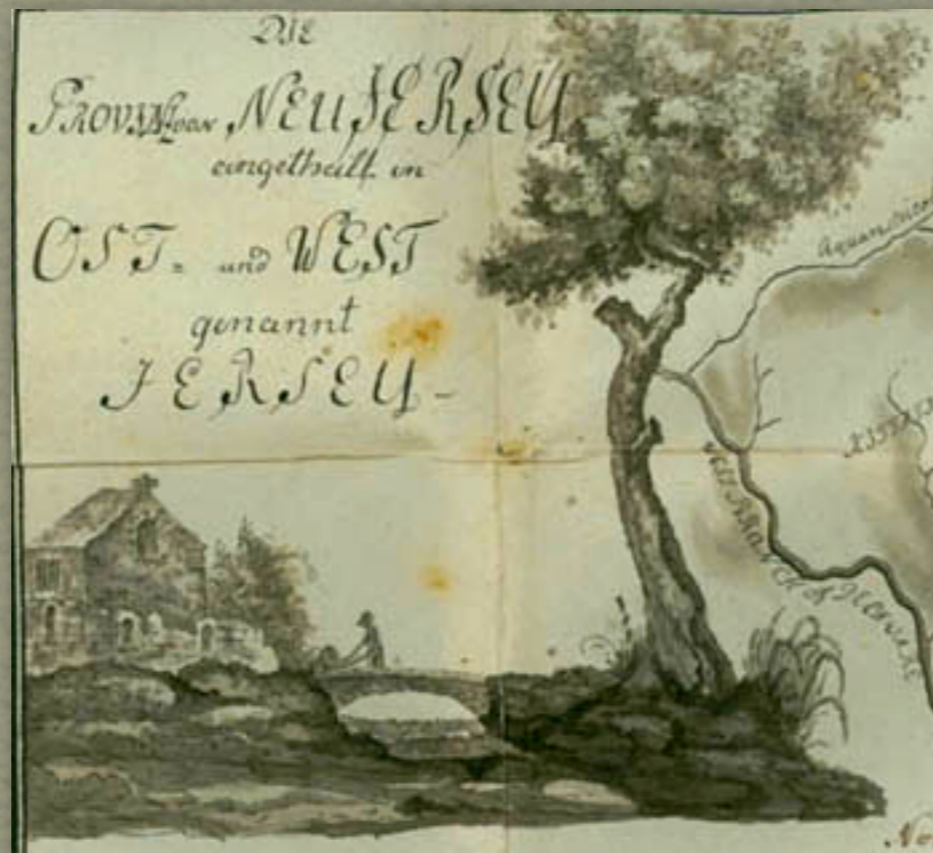 Die
PROVINZ von NEU JERSEY
eingetheilt in
OST- und WEST
genannt
JERSEY-
West Branch of Delaware
No